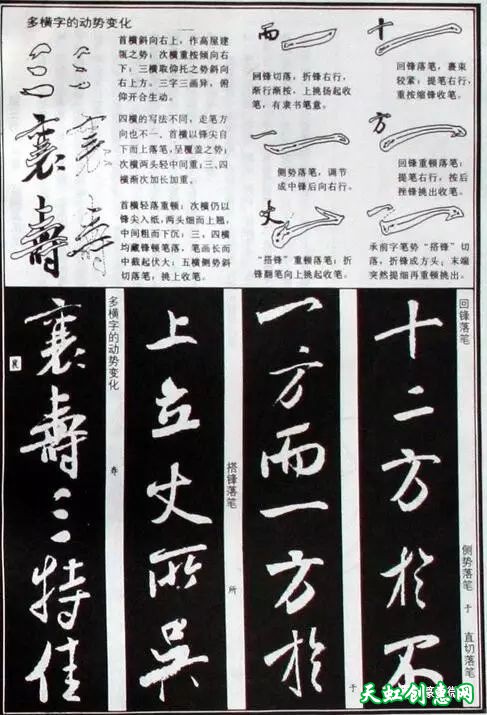 多横字的动势变化
首横斜向右上，作高屋建
瓴之势；次横重按倾向右
下；三横取仰托之势斜向
右上方。三字三画异，俯
仰开合生动。
襄
四横的写法不同，走笔方
向也不一。首横以锋尖自
下而上落笔，呈覆盖之势；
次横两头轻中间重；三、四
横渐次加长加重。
壽
首横轻落重顿；次横仍以
锋尖入纸，两头细而上翘，
中间粗而下沉；三、四横
均藏锋顿笔落，笔画长而
中截起伏大；五横侧势斜
切落笔；挑上收笔。
而
回锋切落，折锋右行，
渐行渐按，上挑扬起收
笔，有隶书笔意。
一
侧势落笔，调节
成中锋后向右行。
丈
“搭锋”重顿落笔；折
锋翻笔向上挑起收笔。
十
回锋落笔，裹束
较紧；提笔右行，
重按缩锋收笔。
方
回锋重顿落笔；
提笔右行，按后
挫锋挑出收笔。
承前字笔势“搭锋”切
落，折锋成方头；末端
突然提细再重顿挑出。
回锋落笔
侧势落笔
于
直切落笔
十二方於不
一方而一方於
于
搭锋落笔
所
上立丈所吴
多横字的动势变化
寿
襄壽三特佳
天虹创意网